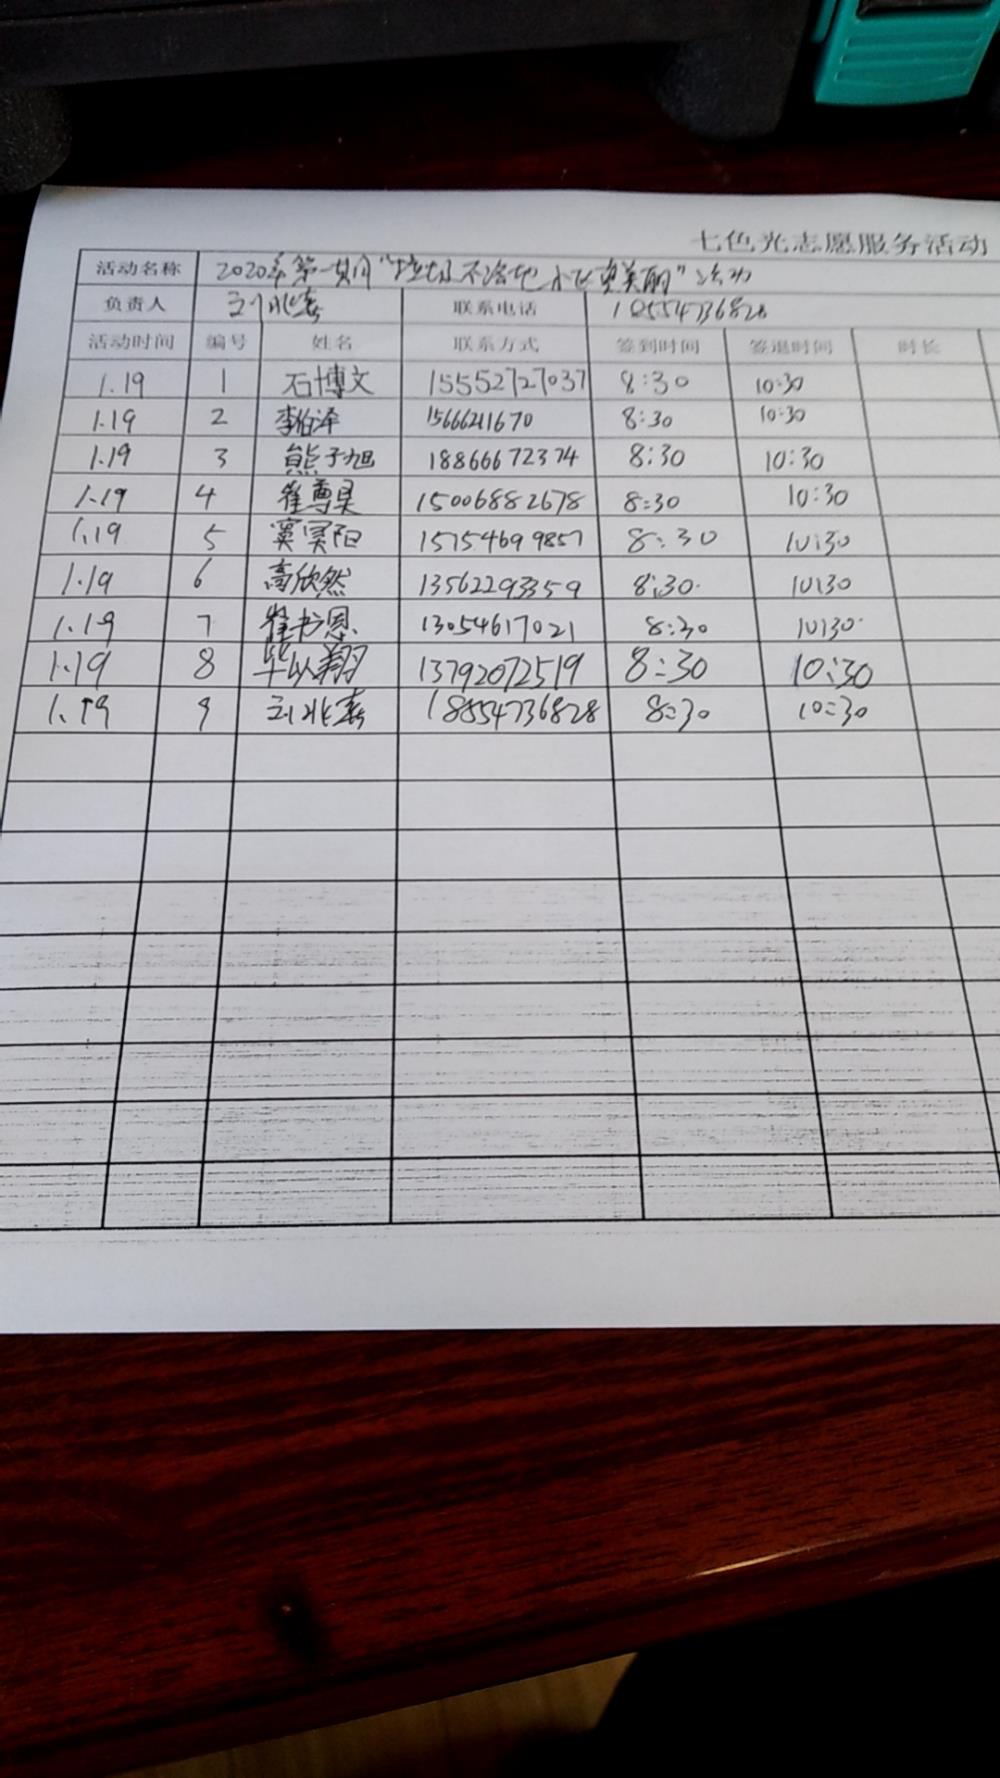 七色光志愿服务活动
活动名称 2020年第一期"垃圾不落地 小区更美丽"活动
负责人 刘兆春 联系电话 18554736828
活动时间 编号 姓名 联系方式 签到时间 签退时间 时长
1.19 1 石博文 15552727037 8:30 10:30
1.19 2 李伯泽 15666211670 8:30 10:30
1.19 3 熊子旭 18866672374 8:30 10:30
1.19 4 崔尊昊 15006882678 8:30 10:30
1.19 5 15754699857 8:30 10:30
1.19 6 高欣然 13562293359 8:30 10:30
1.19 7 崔书恩 13054617021 8:30 10:30
1.19 8 毕以翔 13792072519 8:30 10:30
1.19 9 刘兆春 18554736828 8:30 10:30